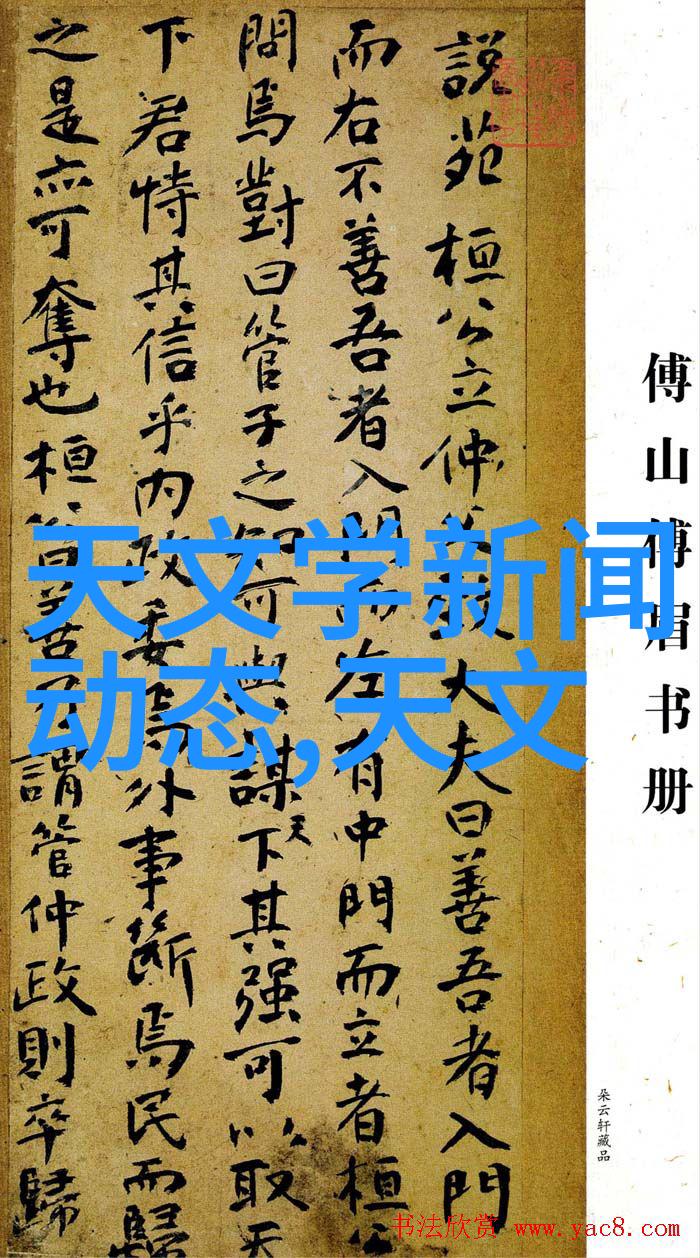 傅山傅眉书册
朵云轩藏品
說苑 桓公立仲父致大夫曰善吾者入門
而右不善吾者入門而左有中門而立者桓公
問焉對曰管子之知可與謀天下其强可以取天
下君恃其信乎内政委焉外事斷焉民而歸
之是亦可奪也桓公曰善乃謂管仲政則卒歸
天文学新闻
动态,天文
书法欣赏 www.yac8.com